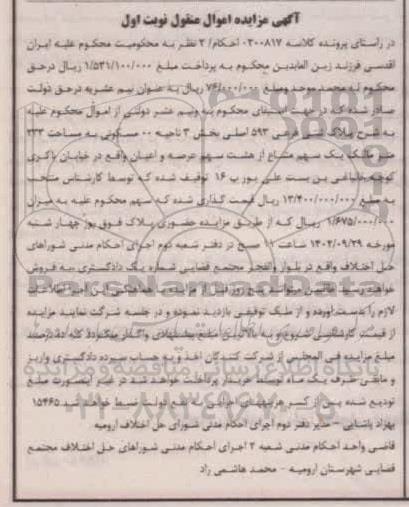 آگهی مزایده اموال منقول نوبت اول
در راستای پرونده کلاسه ۰۳۰۰۸۱۷ احکام/ ۲ نظر به محکومیت محکوم علیه ایران
اقدسی فرزند زین العابدین محکوم به پرداخت مبلغ ۱/۵۳۱/۱۰۰/۰۰۰ ریال درحق
محکوم له محمد موحد ومبلغ ۷۶/۰۰۰/۰۰۰ ریال به عنوان نیم عشریه درحق دولت
صادر شده که در جهت استیفای محکوم به ونیم عشر دولتی از اموال محکوم علیه
به شرح پلاک ثبتی فرعی ۵۹۳ اصلی بخش ۳ ناحیه ۰۰ مسکونی به مساحت ۲۳۳
متر مالک یک سهم مشاع از هشت سهم عرصه و اعیان واقع در خیابان باکری
کوچه خیاطی بن بست علی پور پ ۱۶ توقیف شده که توسط کارشناس منتخب
به مبلغ ۱۳/۴۰۰/۰۰۰/۰۰۰ ریال قیمت گذاری شده که سهم محکوم علیه به میزان
۱/۶۷۵/۰۰۰/۰۰۰ ریال که از طریق مزایده حضوری پلاک فوق روز چهار شنبه
مورخه ۱۴۰۲/۰۹/۲۹ ساعت ۱۱ صبح در دفتر شعبه دوم اجرای احکام مدنی شوراهای
حل اختلاف واقع در بلوار والفجر مجتمع قضایی شماره یک دادگستری به فروش
خواهد رسید طالبین میتوانند پنج روز قبل از مزایده با هماهنگی این اجرا اطلاعات
لازم را بدست آورده و از ملک توقیفی بازدید نموده و در جلسه شرکت نمایند مزایده
از قیمت کارشناسی شروع و به بالاترین مبلغ پیشنهادی واگذار میگردد که ده درصد
مبلغ مزایده فی المجلس از شرکت کنندگان اخذ و به حساب سپرده دادگستری واریز
و مابقی ظرف یک ماه توسط خریدار پرداخت خواهد شد در غیر اینصورت مبلغ
تودیع شده پس از کسر هزینههای اجرایی به نفع دولت ضبط خواهد شد. ۱۵۴۶۵
بهزاد پاشایی - مدیر دفتر دوم اجرای احکام مدنی شورای حل اختلاف ارومیه
قاضی واحد احکام مدنی شعبه ۲ اجرای احکام مدنی شوراهای حل اختلاف مجتمع
قضایی شهرستان ارومیه - محمد هاشمی راد
ParsNamadData
پایگاه اطلاع رسانی مناقصه و مزایده
۰۲۱-۸۸۳۴۹۶۷۰-۵